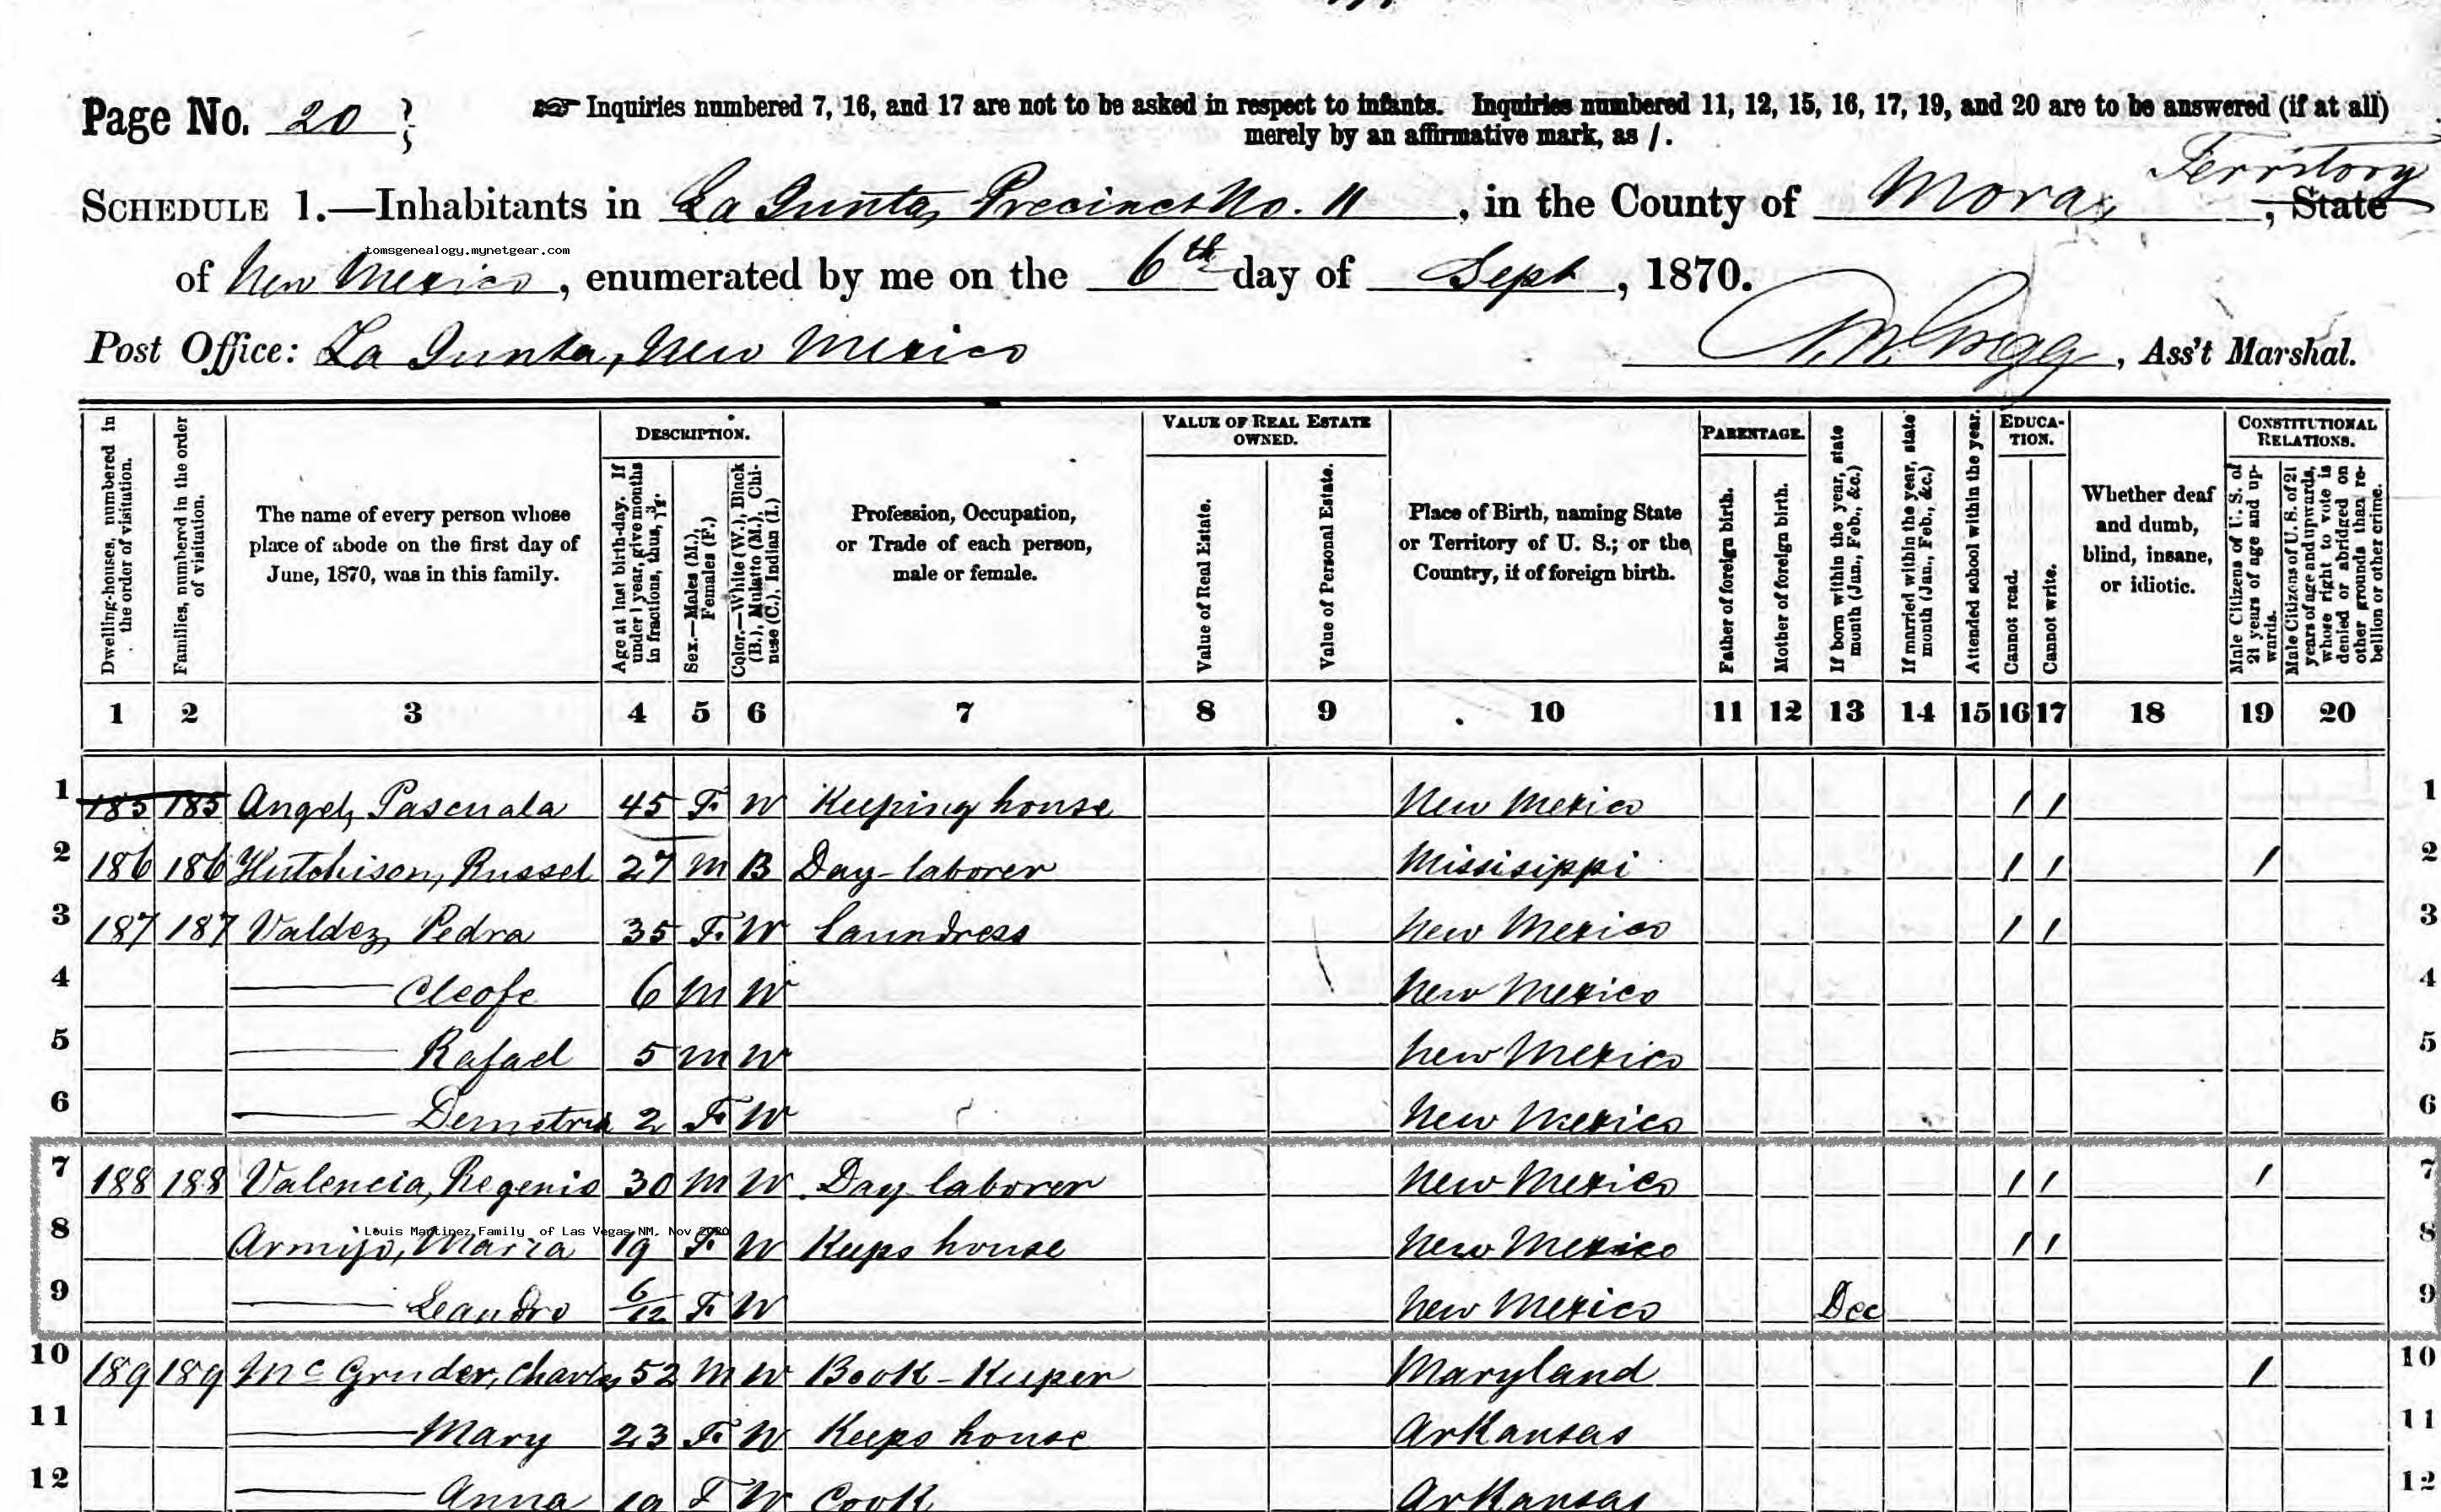 Page No. 20
☞ Inquiries numbered 7, 16, and 17 are not to be asked in respect to infants. Inquiries numbered 11, 12, 15, 16, 17, 19, and 20 are to be answered (if at all)
merely by an affirmative mark, as /.
Territory
SCHEDULE 1.—Inhabitants in La Junta, Precinct No. 11, in the County of Mora, State
tomsgenealogy.mynetgear.com
of New Mexico, enumerated by me on the 6th day of Sept, 1870.
Post Office: La Junta, New Mexico Gregg, Ass't Marshal.
Dwelling-houses, numbered in the order of visitation.
Families, numbered in the order of visitation.
The name of every person whose place of abode on the first day of June, 1870, was in this family.
DESCRIPTION.
Age at last birth-day. If under 1 year, give months in fractions, thus, 3/12.
Sex.—Males (M.), Females (F.)
Color.—White (W.), Black (B.), Mulatto (M.), Chinese (C.), Indian (I.)
Profession, Occupation, or Trade of each person, male or female.
VALUE OF REAL ESTATE OWNED.
Value of Real Estate.
Value of Personal Estate.
Place of Birth, naming State or Territory of U. S.; or the Country, if of foreign birth.
PARENTAGE.
Father of foreign birth.
Mother of foreign birth.
If born within the year, state month (Jan., Feb., &c.)
If married within the year, state month (Jan., Feb., &c.)
Attended school within the year.
EDUCATION.
Cannot read.
Cannot write.
Whether deaf and dumb, blind, insane, or idiotic.
CONSTITUTIONAL RELATIONS.
Male Citizens of U. S. of 21 years of age and upwards.
Male Citizens of U. S. of 21 years of age and upwards, whose right to vote is denied or abridged on other grounds than rebellion or other crime.
1 2 3 4 5 6 7 8 9 10 11 12 13 14 15 16 17 18 19 20
1 185 185 Angel, Pascuala 45 F. W Keeping house New Mexico / / 1
2 186 186 Hutchison, Russel 27 M B Day laborer Missisippi / / / 2
3 187 187 Valdez, Pedra 35 F. W Laundress New Mexico / / 3
4 —— Cleofe 6 M W New Mexico 4
5 —— Rafael 5 M W New Mexico 5
6 —— Demetria 2 F. W New Mexico 6
7 188 188 Valencia, Regenio 30 M W Day laborer New Mexico / / / 7
Louis Martinez Family of Las Vegas NM, Nov 2020
8 Armijo, Maria 19 F. W Keeps house New Mexico / / 8
9 —— Leandro 6/12 F. W New Mexico Dec 9
10 189 189 McGruder, Charles 52 M W Book-Keeper Maryland / 10
11 —— Mary 23 F. W Keeps house Arkansas 11
12 —— Anna 19 F W Cook Arkansas 12